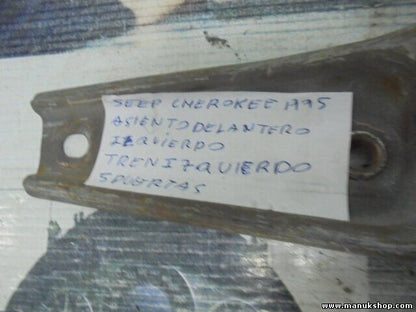 SEEP CHEROKEE A95
ASIENTO DELANTERO
IZQUIERDO
TREN IZQUIERDO
5 PUERTAS
www.manukshop.com